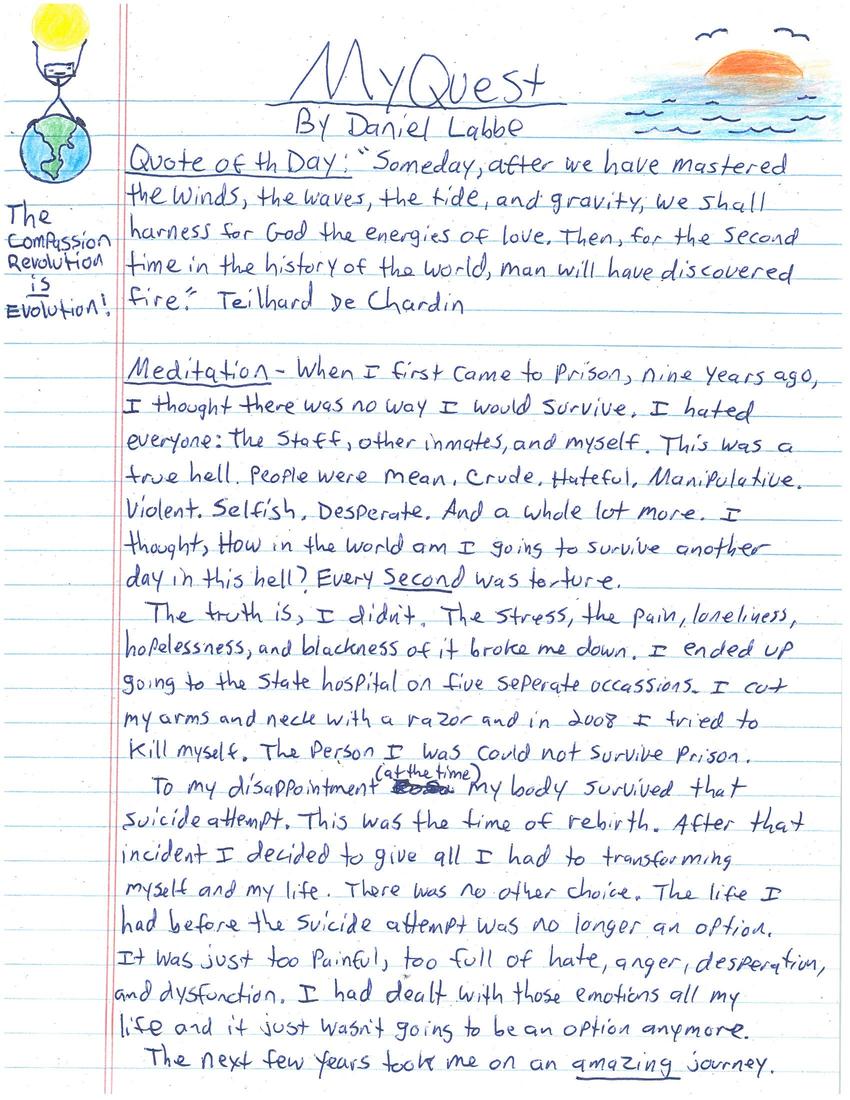 My Quest
By Daniel Labbe
Quote of th Day: "Someday, after we have mastered
the winds, the waves, the tide, and gravity, we shall
harness for God the energies of love. Then, for the second
time in the history of the world, man will have discovered
fire." Teilhard De Chardin
The
Compassion
Revolution
is
Evolution!
Meditation - When I first came to Prison, nine years ago,
I thought there was no way I would survive. I hated
everyone: the staff, other inmates, and myself. This was a
true hell. People were mean. Crude. Hateful. Manipulative.
Violent. Selfish. Desperate. And a whole lot more. I
thought, How in the world am I going to survive another
day in this hell? Every Second was torture.
The truth is, I didn't. The stress, the pain, loneliness,
hopelessness, and blackness of it broke me down. I ended up
going to the State hospital on five seperate occassions. I cut
my arms and neck with a razor and in 2008 I tried to
kill myself. The Person I was could not survive prison.
To my disappointment (at the time) my body survived that
suicide attempt. This was the time of rebirth. After that
incident I decided to give all I had to transforming
myself and my life. There was no other choice. The life I
had before the suicide attempt was no longer an option.
It was just too Painful, too full of hate, anger, desperation,
and dysfunction. I had dealt with those emotions all my
life and it just wasn't going to be an option anymore.
The next few years took me on an amazing journey.